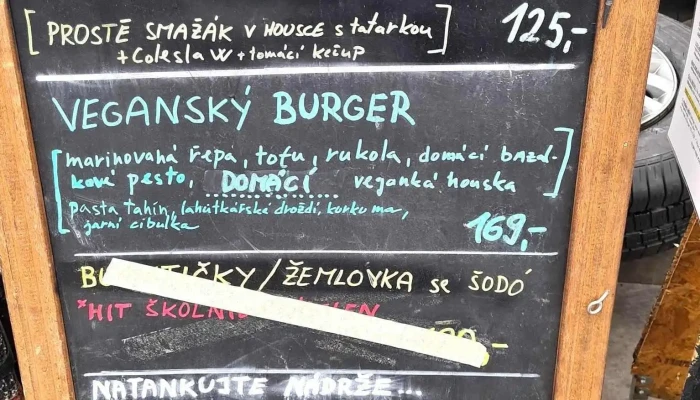 [PROSTĚ SMAŽÁK V HOUSCE s tatarkou] 125,-
+ Colesla W + tomácí kečup
VEGANSKÝ BURGER
[marinovaná řepa, tofu, rukola, domácí bazal-
kové pesto, DOMÁCÍ veganká houska]
pasta tahín, lahůtkářské droždí, kurkuma,
jarní cibulka 169,-
/ŽEMLOVKA se ŠODÓ
*HIT
NATANKUJTE NÁDRŽE...